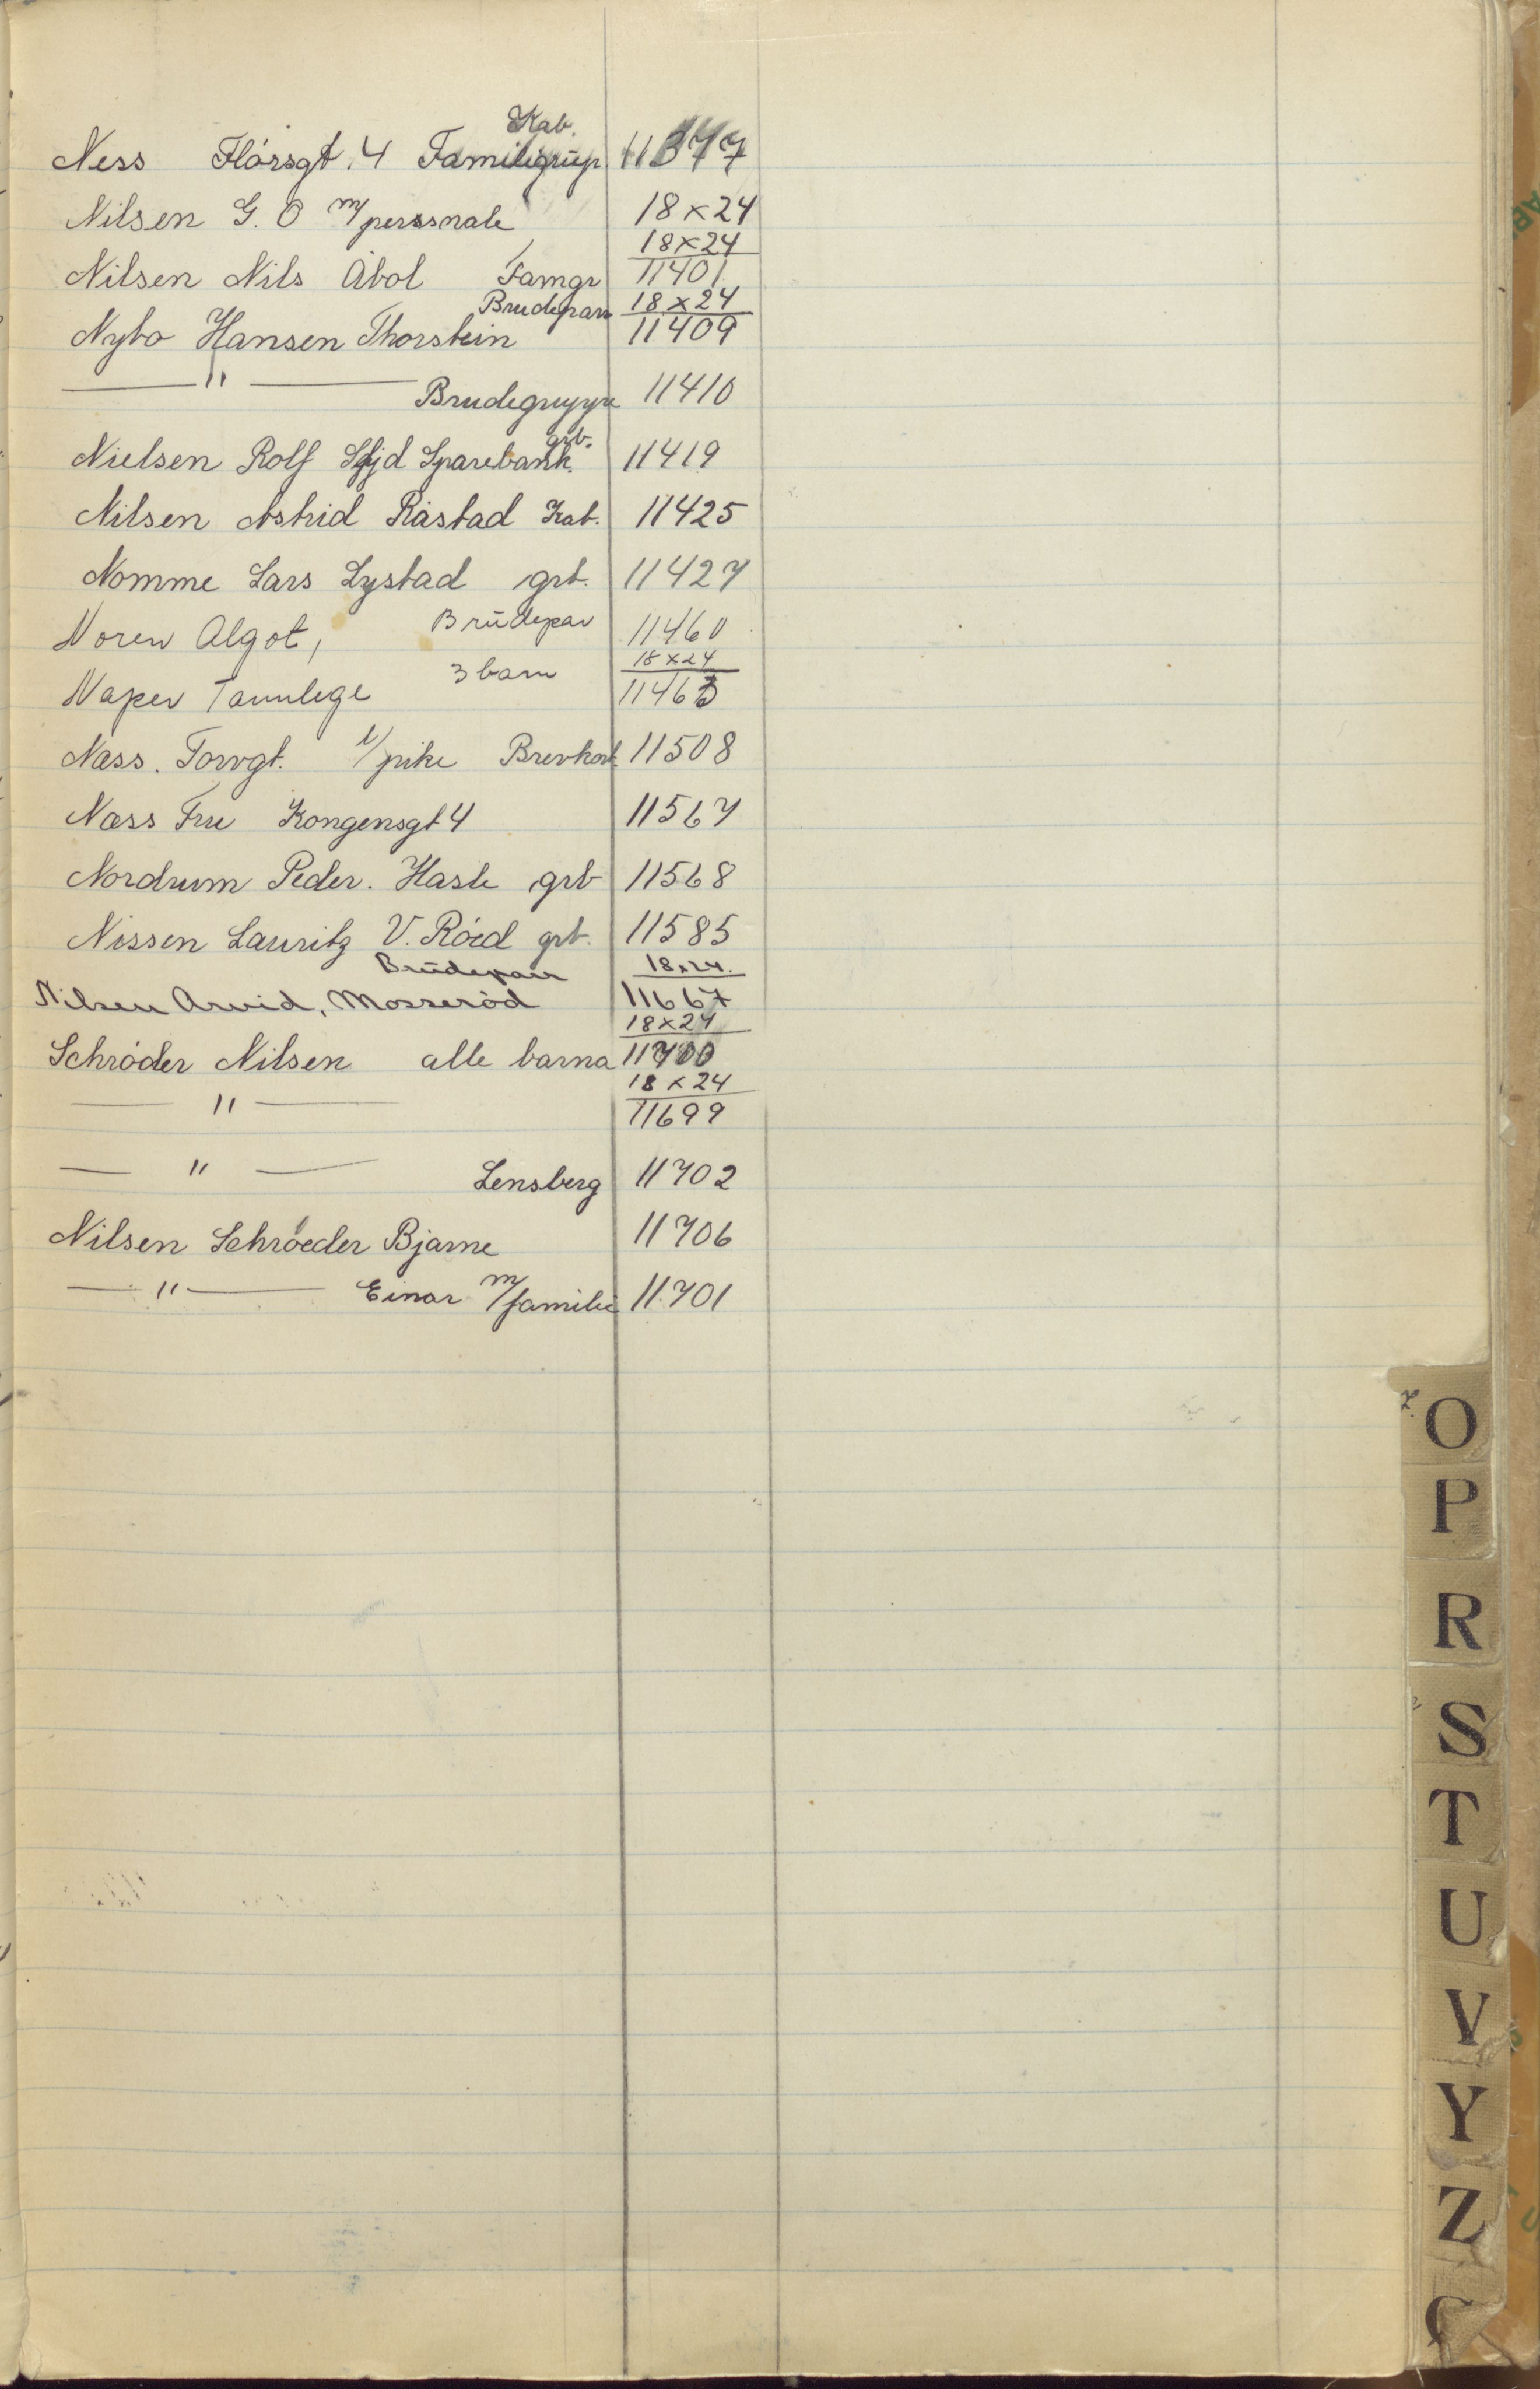 Kab.
Ness Flórsgt. 4 Familigrup 11377
Nilsen G. O m/personale 18x24
18x24
Nilsen Nils Åbol Famgr 11401
Brudepar 18x24
Nybo Hansen Thorstein 11409
— " — Brudegruppe 11410
grb.
Nielsen Rolf Sfjd Sparebank. 11419
Nilsen Astrid Råstad Kab. 11425
Nomme Lars Lystad grb. 11427
Noren Algot, Brudepar 11460
18x24
Naper Tannlege 3 barn 11463
Næss. Torvgt. 1/pike Brevkort 11508
Næss Fru Kongensgt 4 11567
Nordrum Peder. Hasle grb 11568
Nissen Lauritz V. Róed grb. 11585
Brudepar 18x24.
Nilsen Arvid, Mosseröd 11667
18x24
Schróder Nilsen alle barna 11700
18x24
— " — 11699
— " — Lensberg 11702
Nilsen Schróeder Bjarne 11706
— " — Einar m/familie 11701
O
P
R
S
T
U
V
Y
Z